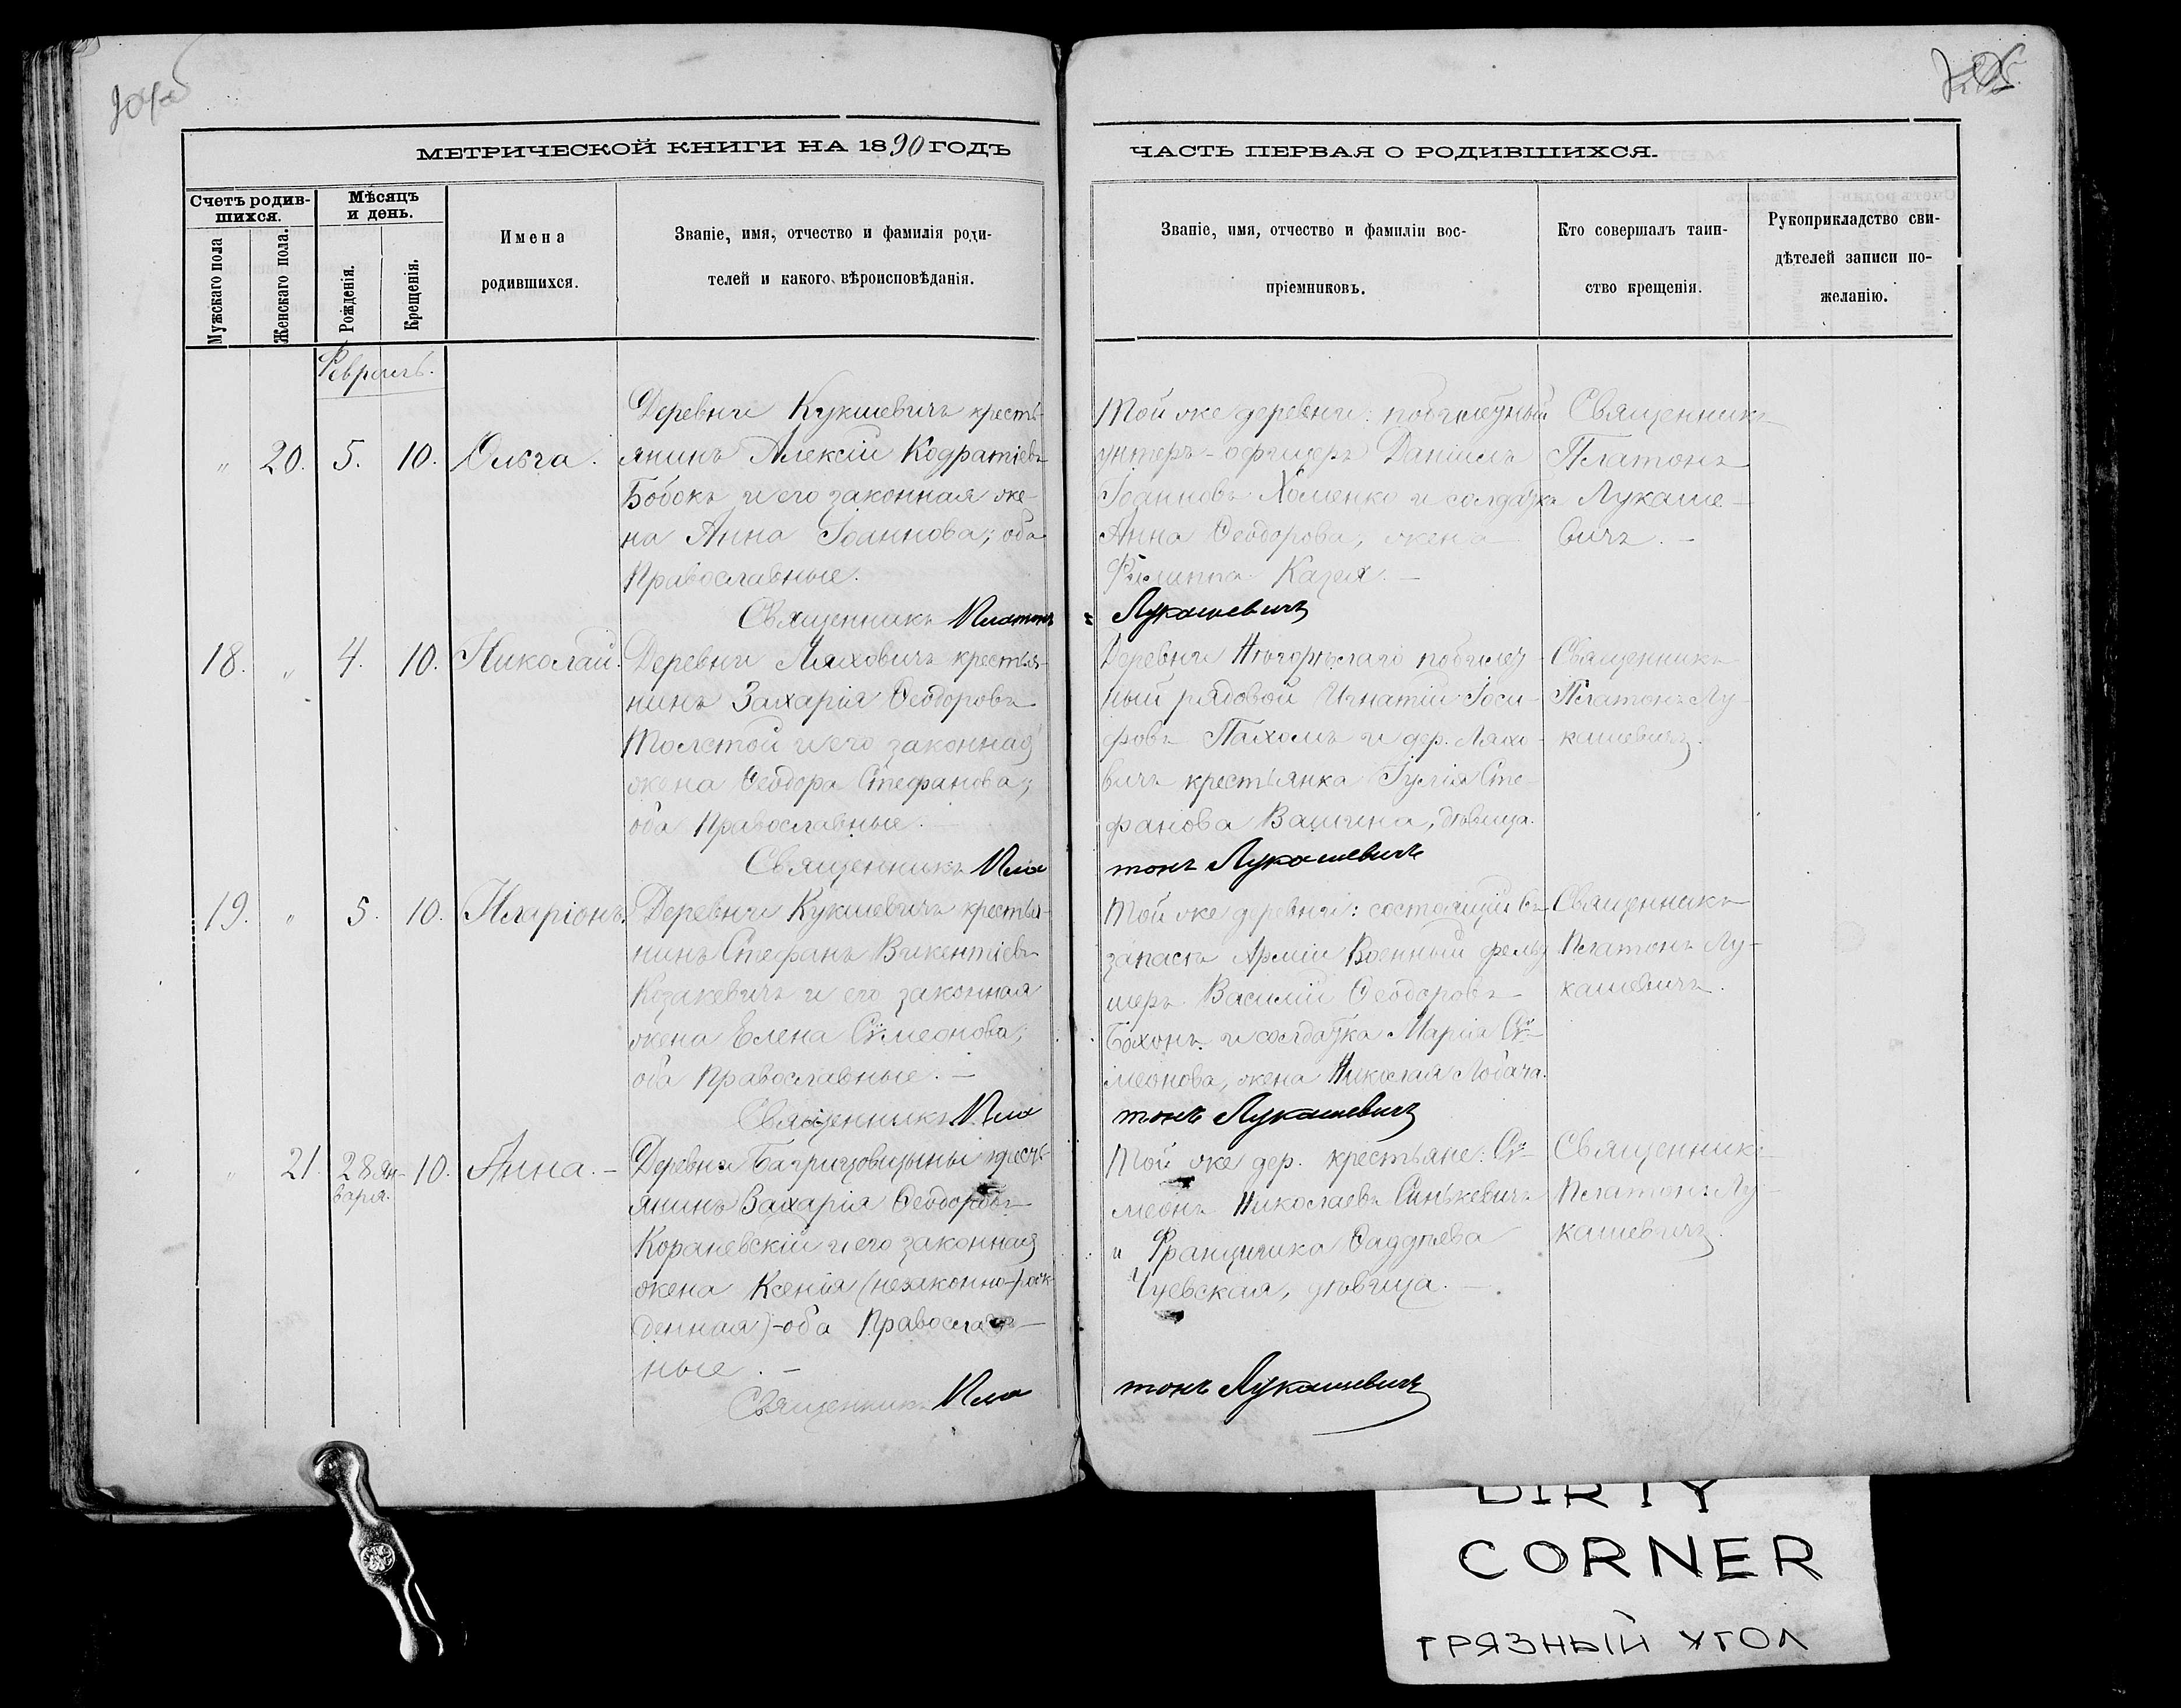 МЕТРИЧЕСКОЙ КНИГИ НА 1890 ГОДЪ
Счетъ родив-
шихся.
Мѣсяцъ
и день.
Мужскаго пола
Женскаго пола.
Рожденія.
Крещенія.
Имена
родившихся.
Званіе, имя, отчество и фамилія роди-
телей и какого вѣроисповѣданія.
Февраль.
" 20. 5. 10. Ольга.
Деревни Кукшевичъ кресть-
янинъ Алексій Кодратіевъ
Бобокъ и его законная же-
на Анна Іоаннова; оба
Православные.
Священникъ Платонъ
18. " 4. 10. Николай.
Деревни Ляховичъ крестья-
нинъ Захарія Ѳеодоровъ
Толстой и его законная
жена Ѳеодора Стефанова;
оба Православные.
Священникъ Пла
19. " 5. 10. Иларіонъ.
Деревни Кукшевичъ крестья-
нинъ Стефанъ Викентіевъ
Козакевичъ и его законная
жена Елена Сѵмеонова;
оба Православные. —
Священникъ Пла
" 21. 28 Ян-
варя. 10. Анна. —
Деревни кресть-
янинъ Захарія Ѳеодоровъ
Кораневскій и его законная
жена Ксенія (незаконно-рож-
денная) - оба Православ-
ные. —
Священникъ Пла
ЧАСТЬ ПЕРВАЯ О РОДИВШИХСЯ.
Званіе, имя, отчество и фамиліи вос-
пріемниковъ.
Кто совершалъ таин-
ство крещенія.
Рукоприкладство сви-
дѣтелей записи по-
желанію.
Той же деревни:
унтеръ-офицеръ Даніилъ
Іоанновъ Хоменко и солдатка
Анна Ѳеодорова, жена
Филиппа
Лукашевичъ
Священникъ
Платонъ
Лукаше-
вичъ. —
Деревни
ный рядовой Игнатій Іоси-
фовъ Пахомъ и дер. Ляхо-
вичъ крестьянка Іулія Сте-
фанова Вашкина, дѣвица.
тонъ Лукашевичъ
Священникъ
Платонъ Лу-
кашевичъ.
Той же деревни: состоящій въ
запасѣ Арміи Военный фельд
шеръ Василій Ѳеодоровъ
Бохонъ и солдатка Марія Сѵ-
меонова, жена Николая Лобача.
тонъ Лукашевичъ
Священникъ
Платонъ Лу-
кашевичъ.
Той же дер. крестьяне: Сѵ-
меонъ Николаевъ Синькевичъ
и Францишка Ѳаддѣева
дѣвица. —
тонъ Лукашевичъ
Священникъ
Платонъ Лу-
кашевичъ.
DIRTY
CORNER
ГРЯЗНЫЙ УГОЛ